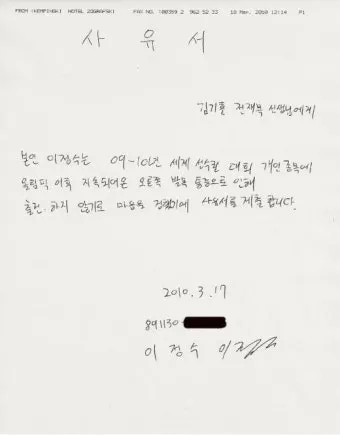 FROM (KEMPINSKI) HOTEL ZOGRAFSKI FAX NO. 100359 2 962 52 33 18 Mar. 2010 12:14 P1
사 유 서
김기훈 전재목 선생님에게
본인 이정수는 09-10년 세계 선수권 대회 개인종목에
올림픽 이후 지속되어온 오른쪽 발목 통증으로 인해
출전 하지 않기로 마음을 정했기에 사유서를 제출합니다.
2010.3.17
891130-
이 정 수 이정수